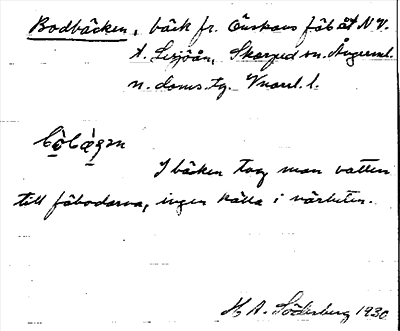 Bodbäcken, bäck fr. Önskans fäb åt N.V.
t. Lesjöån, Skorped sn. Ångerml.
n. doms. tg. Vnorrl. l.
I bäcken tog man vatten
till fäbodarna, ingen källa i närheten.
H. A. Söderberg 1930